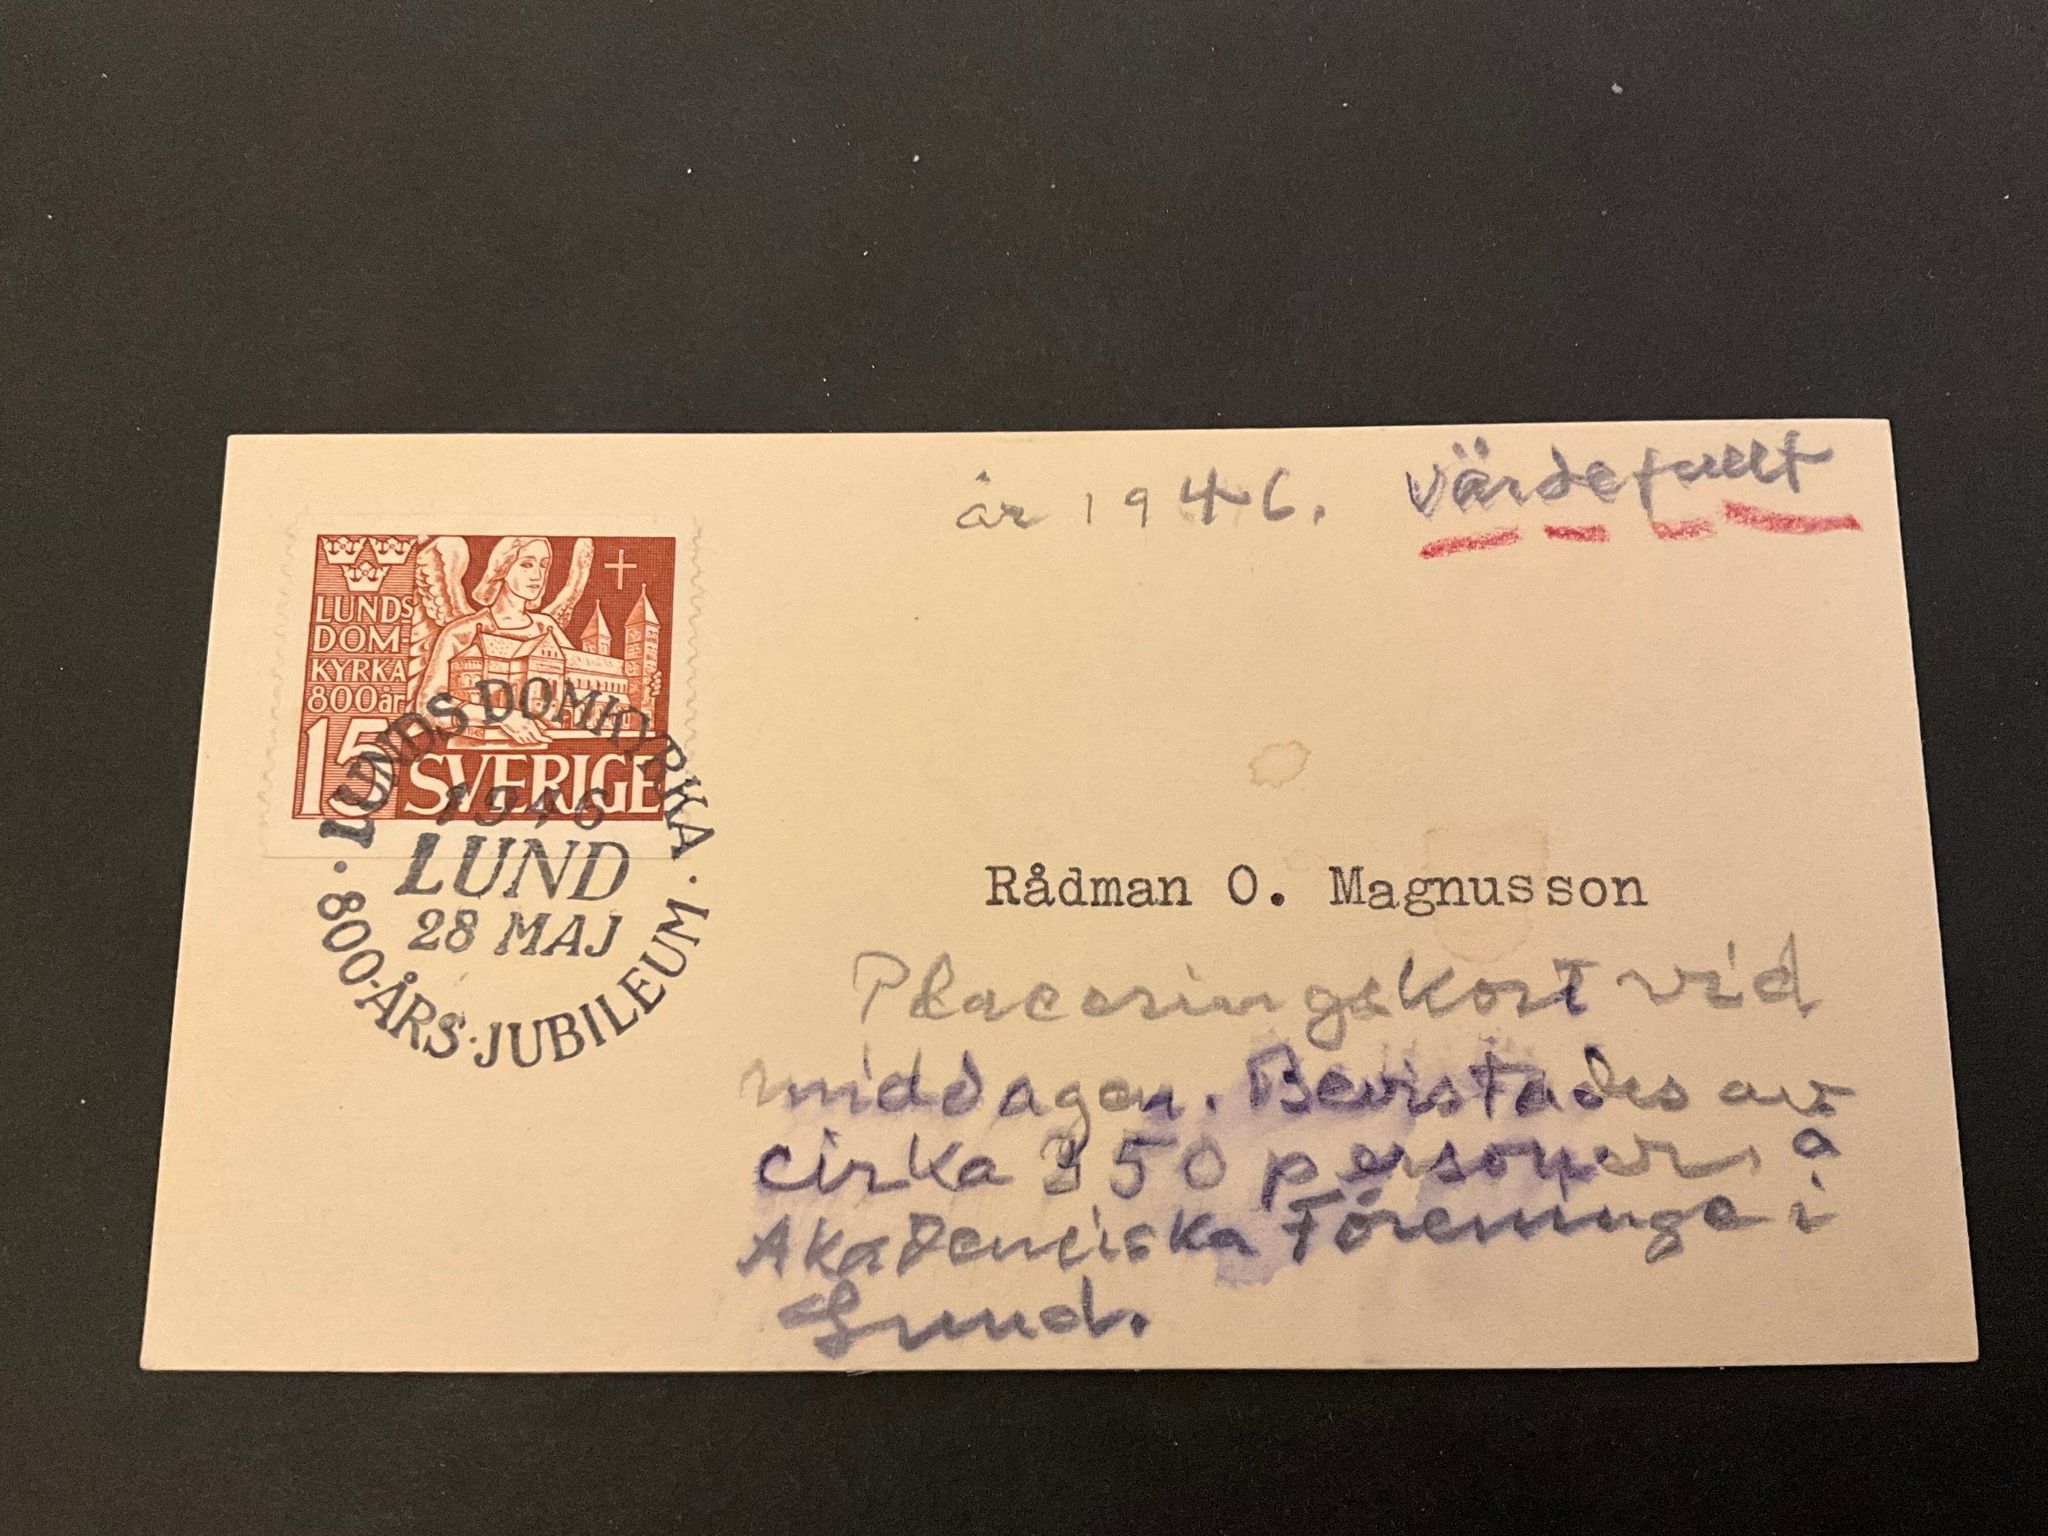 år 1946. värdefullt
LUNDS
DOM-
KYRKA
800år
15 SVERIGE
· LUNDS DOMKYRKA ·
1946
LUND
28 MAJ
800-ÅRS-JUBILEUM
Rådman O. Magnusson
Placeringskort vid
middagen. Bevistades av
cirka 350 personer, å
Akademiska Föreninge i
Lund.